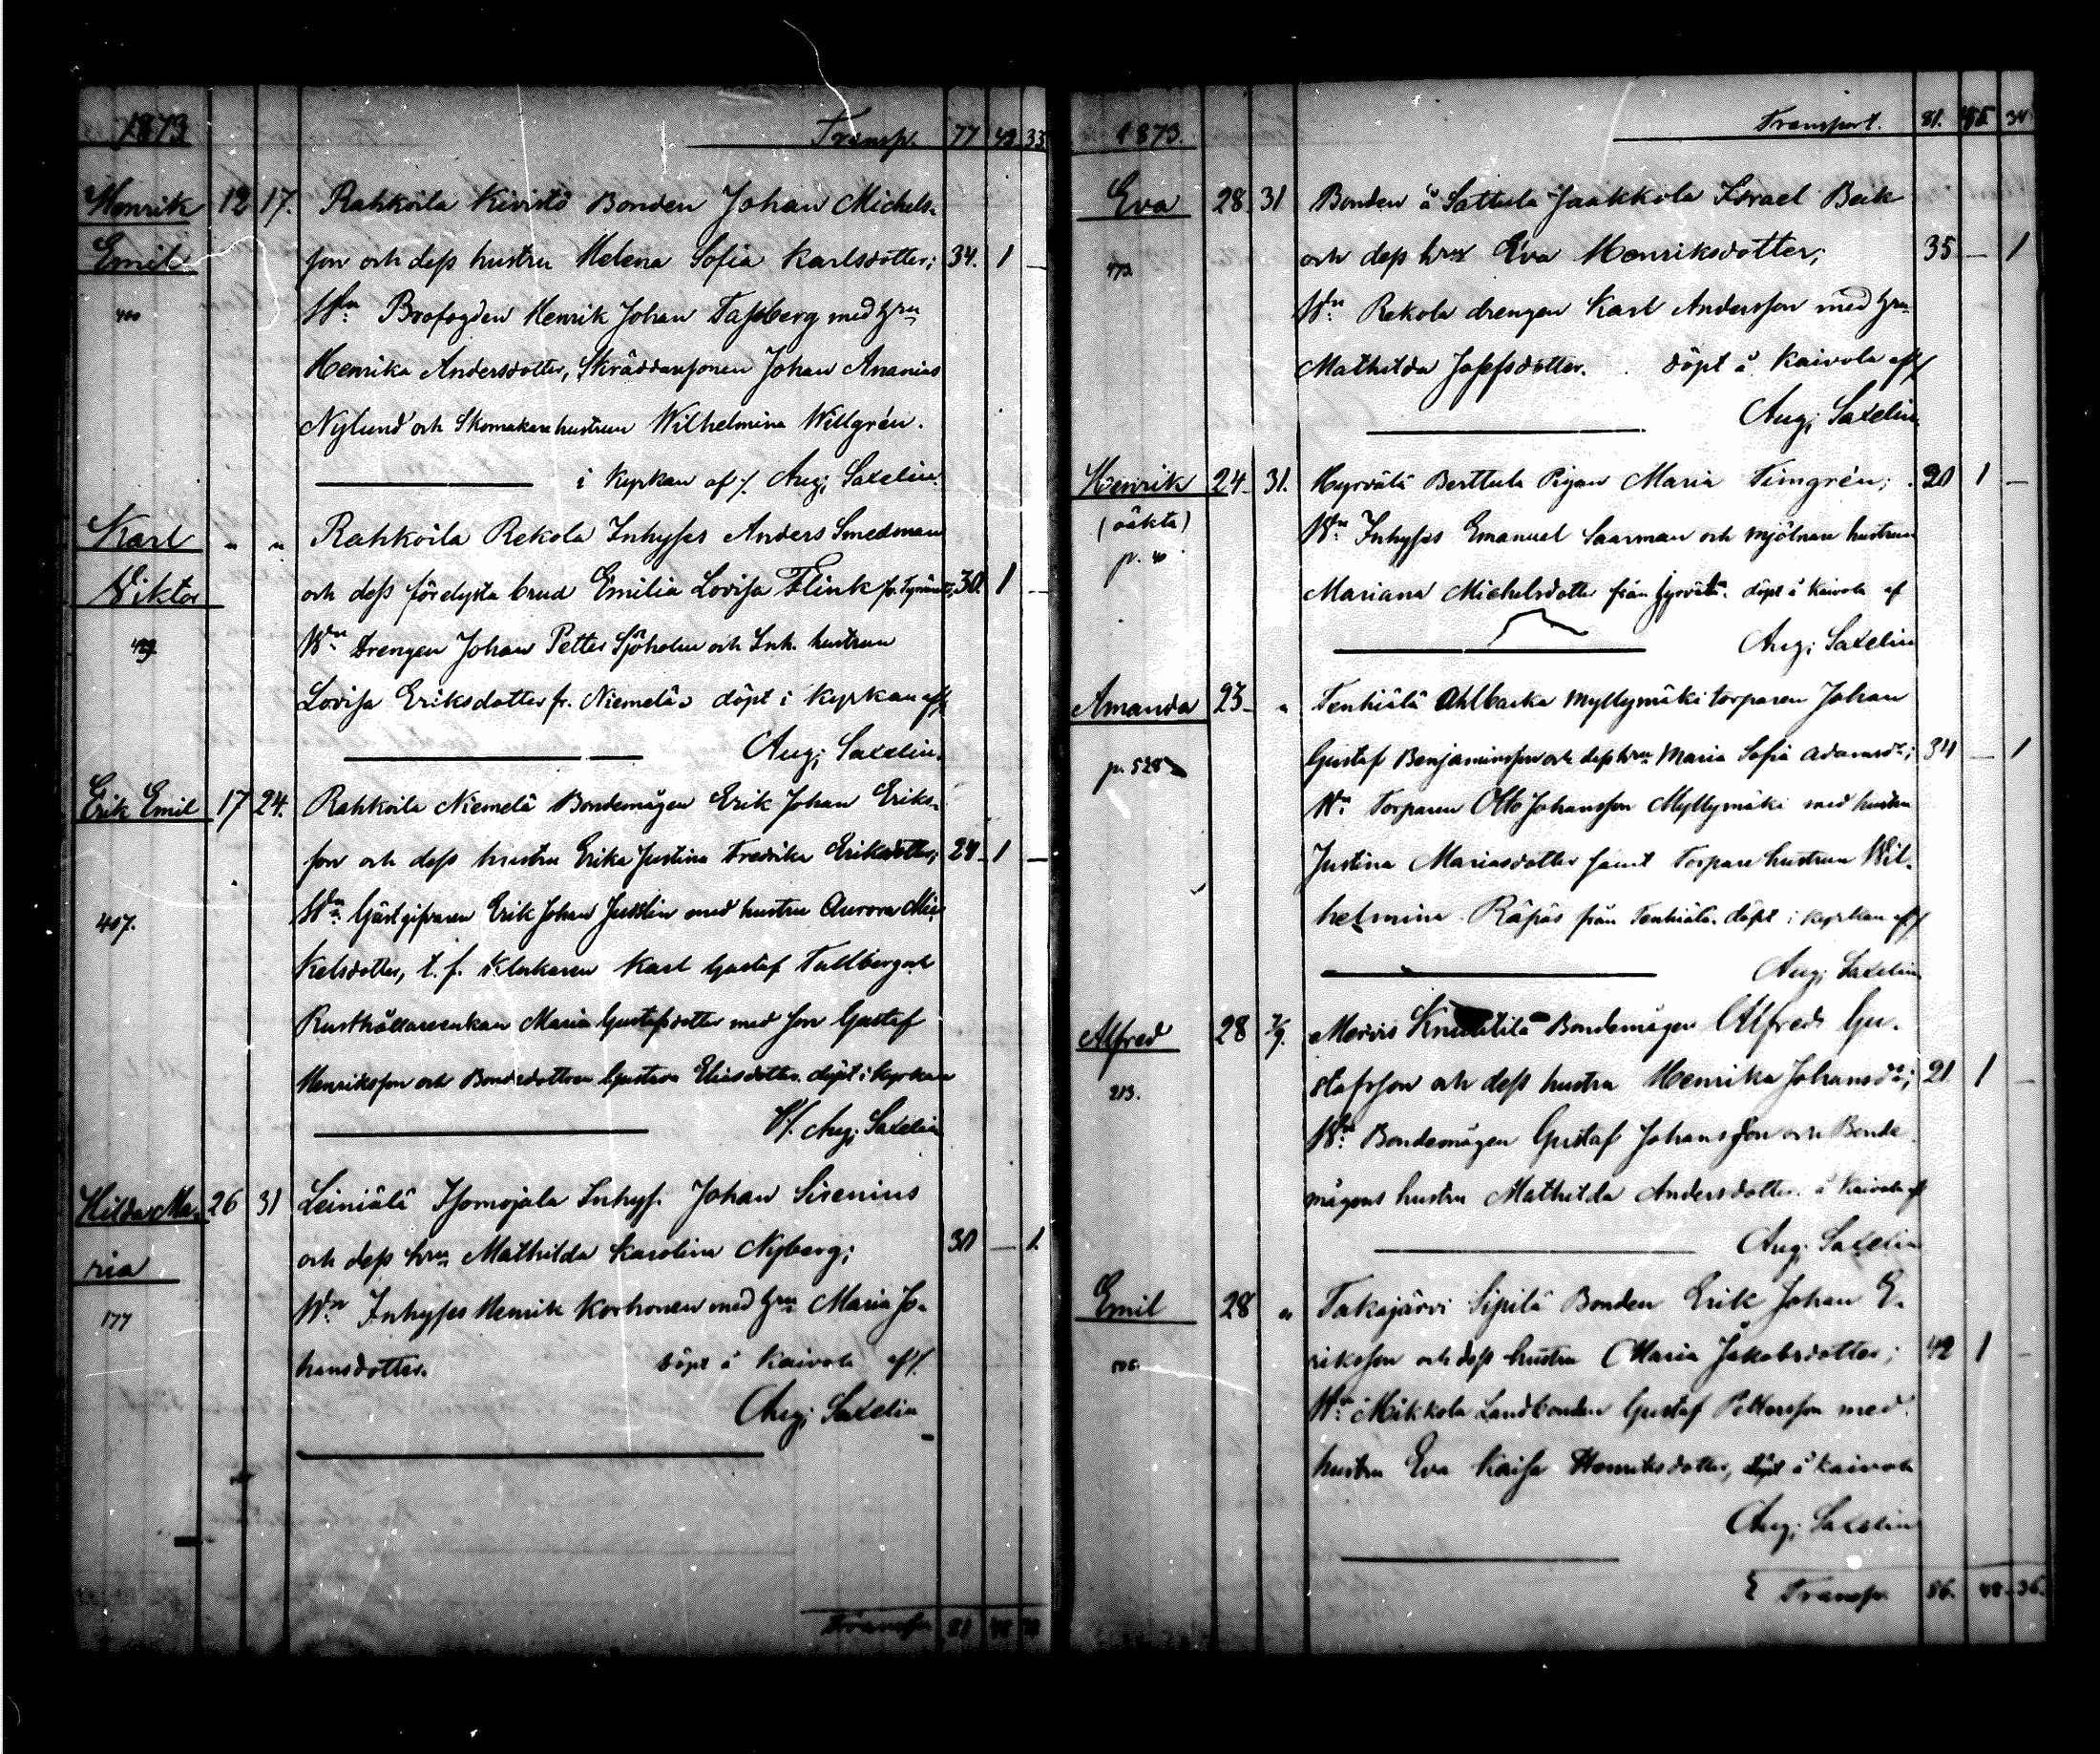 1873 Transp. 77 43 33
Henrik 12 17. Rahkoila Kivistö Bonden Johan Michels-
Emil son och dess hustru Helena Sofia Karlsdotter; 34. 1 —
400 Wn: Brofogden Henrik Johan Tassberg med hru
Henrika Andersdotter, Skräddaresonen Johan Ananias
Nylund och Skomakarehustrun Wilhelmina Willgrén.
i kyrkan af ./. Aug; Saxelin.
Karl " " Rahkoila Rekola Inhyses Anders Smedman
Viktor och dess förelysta brud Emilia Lovisa Flink 30. 1 —
Wn Drengen Johan Petter Sjöholm och Inh. hustrun
Lovisa Eriksdotter fr. Niemelä döpt i kyrkan af
Aug; Saxelin.
Erik Emil 17 24. Rahkoila Niemelä Bondemågen Erik Johan Eriks-
son och dess hustru Erika Justina Fredrika Eriksdotter; 24 1 —
407. Wn: Gästgifvaren Erik Johan Jusslin med hustru Aurora Mi-
kelsdotter, t. f. klockaren Karl Gustaf Tallberg och
Rusthållareenkan Maria Gustafsdotter med son Gustaf
Henriksson och Bondedottren Gustava Eliasdotter. döpt i kyrkan
af. Aug; Saxelin
Hilda Ma- 26 31 Leiniälä Isomojala Inhys. Johan Sirenius
ria och dess hru Mathilda Karolina Nyberg; 30 — 1.
177 Wn Inhyses Henrik Korhonen med hru Maria Jo-
hansdotter. döpt å Kaivola af/.
Aug; Saxelin
Transp 81
1873. Transport. 81. 34
Eva 28 31 Bonden å Sattula Jaakkola Israel Beck
och dess hru Eva Henriksdotter; 35 — 1
Wn: Rekola drengen Karl Andersson med hru
Mathilda Josefsdotter. döpt å Kaivola af/
Aug; Saxelin
Henrik 24 31. Hyrvälä Berttula Pigan Maria Timgrén; 20 1 —
(oäkta) Wn Inhyses Emanuel Saarman och mjölnare hustrun
p. 40 Mariana Michelsdotter från Hyrvälä. döpt å Kaivola af
Aug; Saxelin
Amanda 23 " Tenhiälä Ahlbacka Myllymäki torparen Johan
p. 528 Gustaf Benjaminsson och dess hru Maria Sofia Adamsdr; 34 — 1
Wn: Torparen Otto Johansson Myllymäki med hustru
Justina Mariasdotter samt Torpare hustrun Wil-
helmina Räpäs från Tenhiälä. döpt i kyrkan af/
Aug; Saxelin
Alfred 28 7/9. Mervis Knuutila Bondemågen Alfred Gu-
213. stafsson och dess hustru Henrika Johansdr; 21. 1 —
Wn: Bondemågen Gustaf Johansson och Bonde
mågens hustru Mathilda Andersdotter. å Kaivola af
Aug; Saxelin
Emil 28 " Takajärvi Sipilä Bonden Erik Johan E-
riksson och dess hustru Maria Jakobsdotter; 42 1 —
Wn: Mikkola Landbonden Gustaf Pettersson med
hustru Eva Kaisa Henriksdotter, döpt å Kaivola
Aug; Saxelin
Transp. 86. 36.